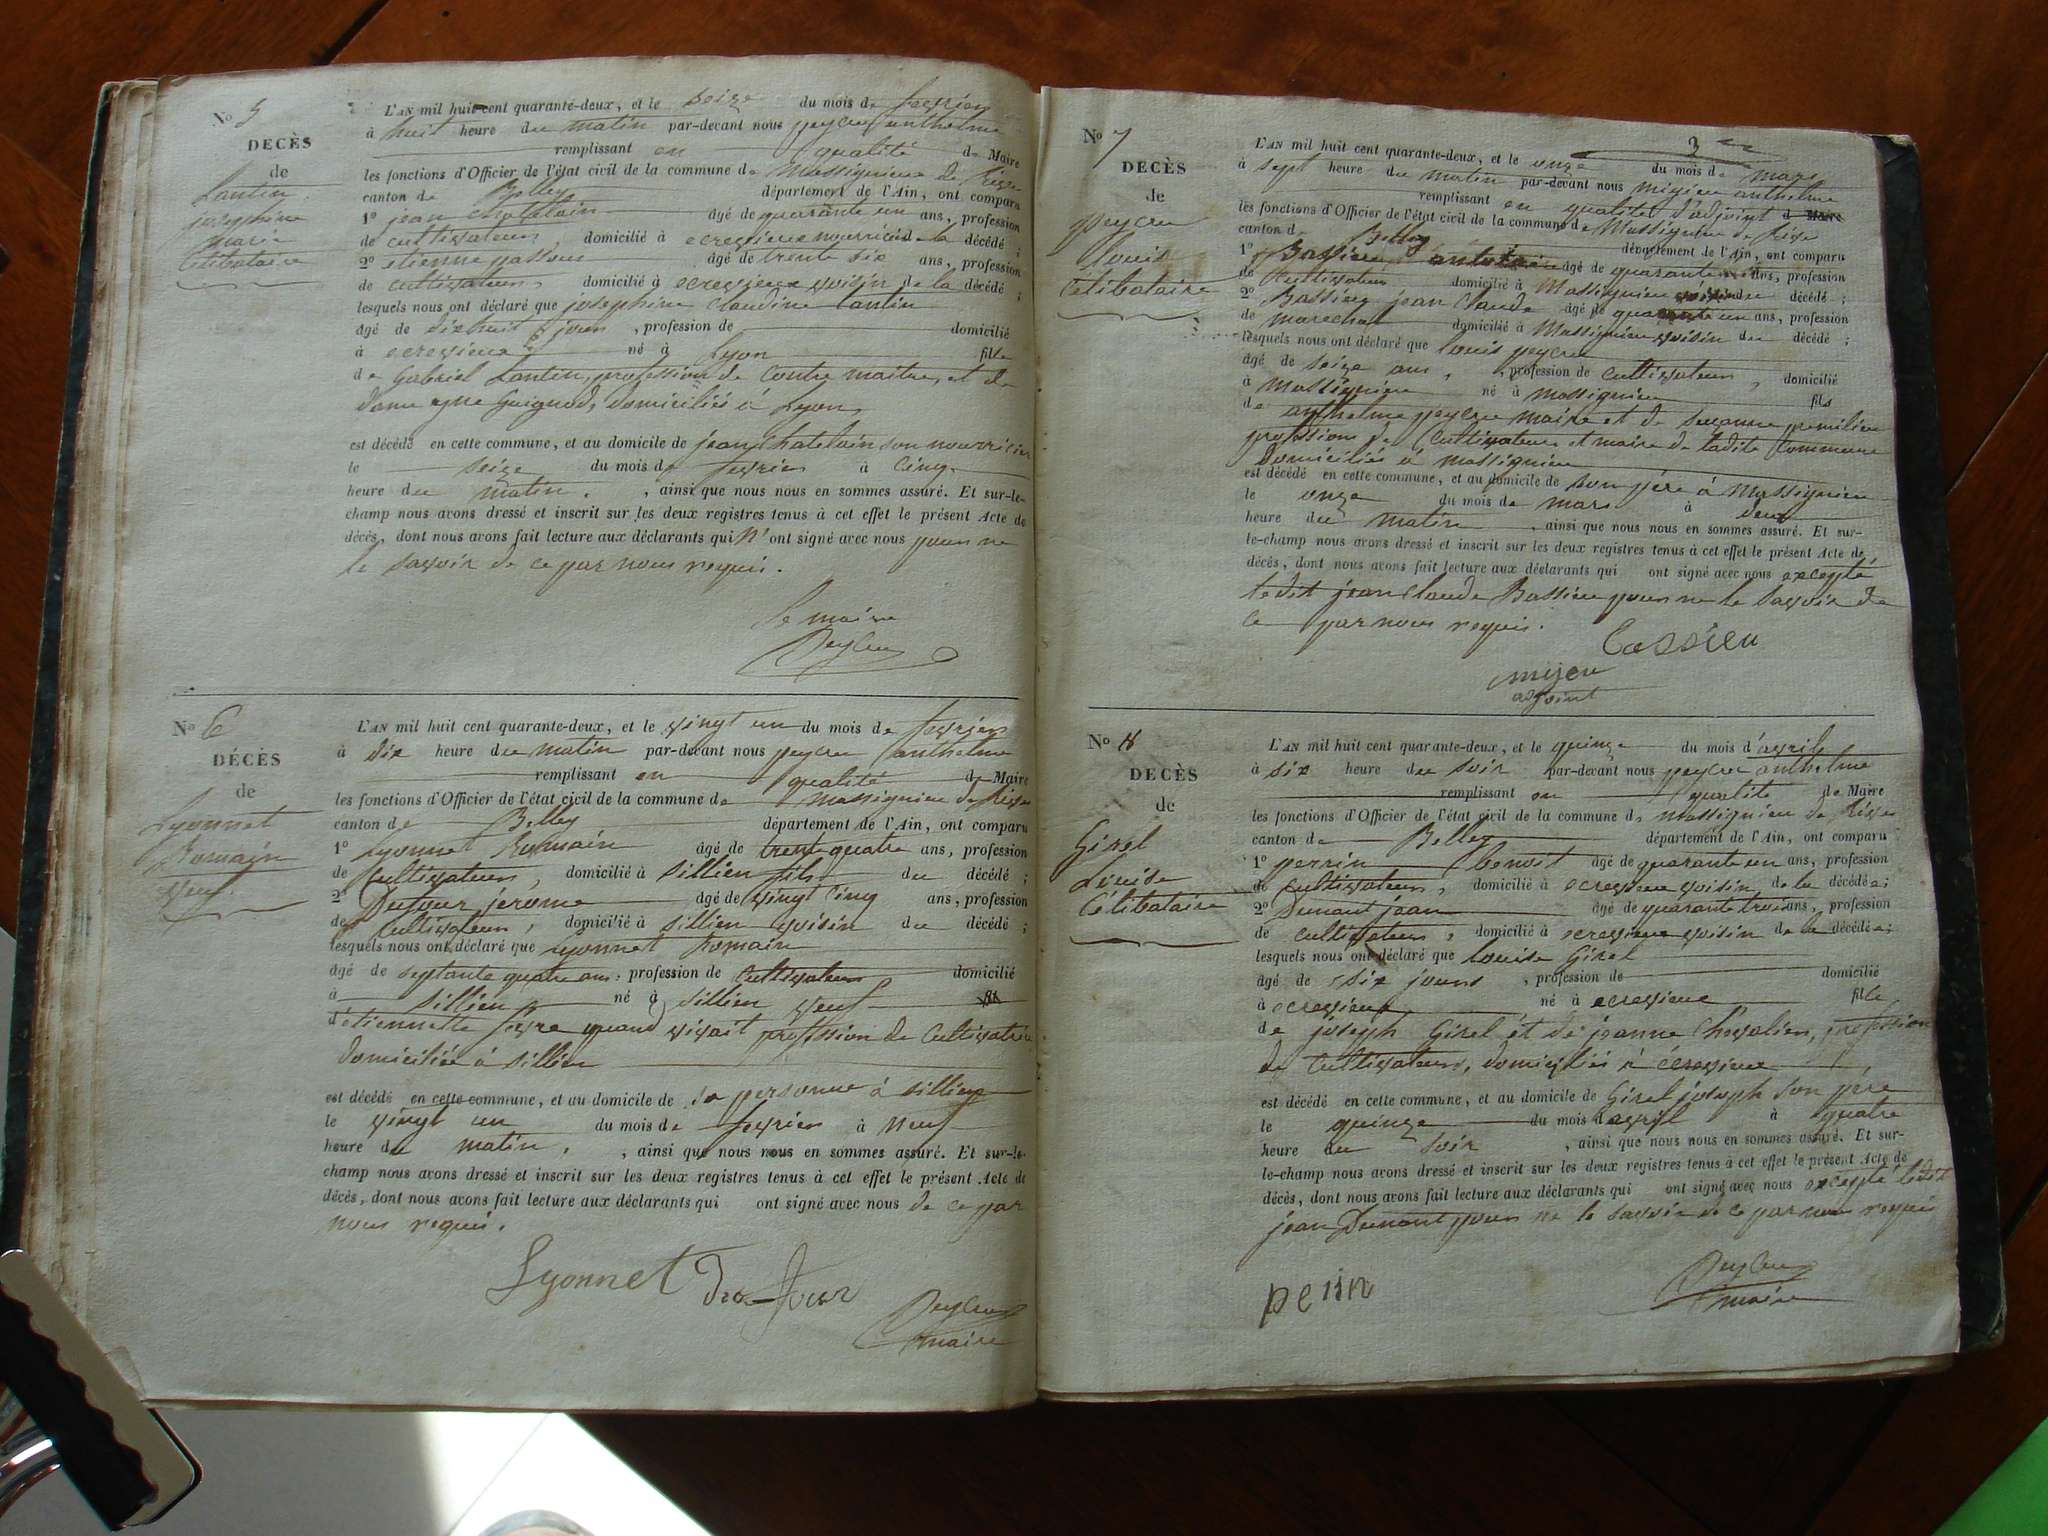 No 5
DECÈS
de
Lantin
josephine
marie
Célibataire
L'AN mil huit cent quarante-deux, et le seize du mois de fevrier
à huit heure du matin par-devant nous peycru anthelme
remplissant en qualité de Maire
les fonctions d'Officier de l'état civil de la commune de Massignieu de Rives
canton de Belley département de l'Ain, ont comparu
1º jean chatelain âgé de quarante un ans, profession
de cultivateur, domicilié à ecrevieux nourricier de la décédé ;
2º etienne passeur âgé de trente six ans, profession
de cultivateur, domicilié à ecrevieux voisin de la décédé ;
lesquels nous ont déclaré que josephine Claudine Lantin
âgé de dixhuit jours, profession de domicilié
à ecrevieux né à Lyon fille
de Gabriel Lantin, profession de Contre maitre, et de
dame Guignod, domiciliés à Lyon,
est décédé en cette commune, et au domicile de jean Chatelain son nourricier
le seize du mois de fevrier à cinq
heure du matin. , ainsi que nous nous en sommes assuré. Et sur-le-
champ nous avons dressé et inscrit sur les deux registres tenus à cet effet le présent Acte de
décès, dont nous avons fait lecture aux déclarants qui N'ont signé avec nous pour ne
le savoir de ce par nous requis.
Le maire
Peycru
No 6
DÉCÈS
de
Lyonnet
Romain
veuf
L'AN mil huit cent quarante-deux, et le vingt un du mois de fevrier
à dix heure du matin par-devant nous peycru anthelme
remplissant en qualité de Maire
les fonctions d'Officier de l'état civil de la commune de massignieu de Rives
canton de Belley département de l'Ain, ont comparu
1º Lyonnet Romain âgé de trente quatre ans, profession
de Cultivateur, domicilié à Sillien fils du décédé ;
2º Dufour jérome âgé de vingt cinq ans, profession
de Cultivateur, domicilié à Sillien voisin du décédé ;
lesquels nous ont déclaré que Lyonnet Romain
âgé de septante quatre ans, profession de Cultivateur domicilié
à Sillien né à Sillien veuf fils
d'étiennette fevre quand vivait profession de Cultivatrice
domiciliée à Sillien
est décédé en cette commune, et au domicile de sa personne à Sillien
le vingt un du mois de fevrier à neuf
heure du matin. , ainsi que nous nous en sommes assuré. Et sur-le-
champ nous avons dressé et inscrit sur les deux registres tenus à cet effet le présent Acte de
décès, dont nous avons fait lecture aux déclarants qui ont signé avec nous de ce par
nous requis.
Lyonnet Du Four
Peycru
maire
3
No 7
DECÈS
de
peycru
louis
Célibataire
L'AN mil huit cent quarante-deux, et le onze du mois de mars
à sept heure du matin par-devant nous migieu anthelme
remplissant en qualité d'adjoint de Maire
les fonctions d'Officier de l'état civil de la commune de Massignieu de Rives
canton de Belley département de l'Ain, ont comparu
1º Bassieu âgé de quarante ans, profession
de Cultivateur domicilié à Massignieu voisin du décédé ;
2º Bassieu jean Claude âgé de quarante un ans, profession
de marechal domicilié à Massignieu voisin du décédé ;
lesquels nous ont déclaré que louis peycru
âgé de seize ans, profession de cultivateur, domicilié
à Massignieu né à massignieu fils
de anthelme peycru maire et de suzanne
profession de Cultivateur et maire de ladite Commune
Domiciliés à massignieu
est décédé en cette commune, et au domicile de son père à Massignieu
le onze du mois de mars à deux
heure du matin , ainsi que nous nous en sommes assuré. Et sur-
le-champ nous avons dressé et inscrit sur les deux registres tenus à cet effet le présent Acte de
décès, dont nous avons fait lecture aux déclarants qui ont signé avec nous excepté
ledit jean Claude Bassieu pour ne le savoir de
ce par nous requis.
Bassieu
migieu
adjoint
No 8
DECÈS
de
Girel
Louise
Célibataire
L'AN mil huit cent quarante-deux, et le quinze du mois d'avril
à six heure du soir par-devant nous peycru anthelme
remplissant en qualité de Maire
les fonctions d'Officier de l'état civil de la commune de massignieu de Rives
canton de Belley département de l'Ain, ont comparu
1º perrin benoit âgé de quarante un ans, profession
de cultivateur, domicilié à ecrevieux voisin de la décédée ;
2º Dunant jean âgé de quarante trois ans, profession
de cultivateur, domicilié à ecrevieux voisin de la décédée ;
lesquels nous ont déclaré que louise Girel
âgé de six jours, profession de domicilié
à ecrevieux né à ecrevieux fille
de joseph Girel et de jeanne Chevalier, profession
de Cultivateurs, domiciliés à écrevieux
est décédé en cette commune, et au domicile de Girel joseph son père
le quinze du mois d'avril à quatre
heure du soir , ainsi que nous nous en sommes assuré. Et sur-
le-champ nous avons dressé et inscrit sur les deux registres tenus à cet effet le présent Acte de
décès, dont nous avons fait lecture aux déclarants qui ont signé avec nous excepté ledit
jean Dunant pour ne le savoir de ce par nous requis
perrin
Peycru
maire